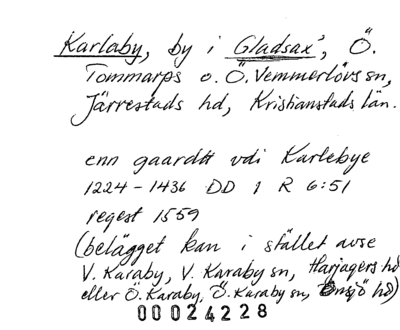 Karlaby, by i Gladsax, Ö.
Tommarps o. Ö. Vemmerlövs sn,
Järrestads hd, Kristianstads län.
enn gaardtt vdi Karlebye
1224-1436 DD 1 R 6:51
regest 1559
(belägget kan i stället avse
V. Karaby, V. Karaby sn, Harjagers hd
eller Ö. Karaby, Ö. Karaby sn, Onsjö hd)
00024228